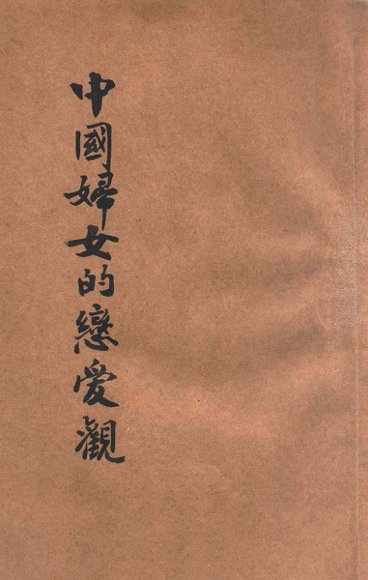 中國婦女的戀愛觀